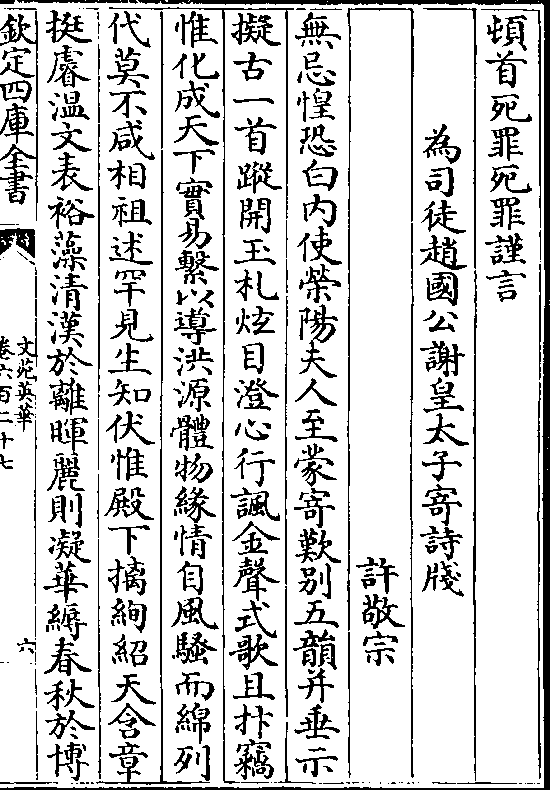 頓首死罪死罪謹言
為司徒趙國公謝皇太子寄詩牋
許敬宗
無忌惶恐白内使榮陽夫人至蒙寄歎别五韻并垂示
擬古一首蹤開玉札炫目澄心行諷金聲式歌且抃竊
惟化成天下實易繫以導洪源體物緣情自風騷而綿列
代莫不咸相祖述罕見生知伏惟殿下摛絢紹天含章
挺睿温文表裕藻清漢於離暉麗則凝華縟春秋於博
欽定四庫全書
文苑英華
卷六百二十七
六